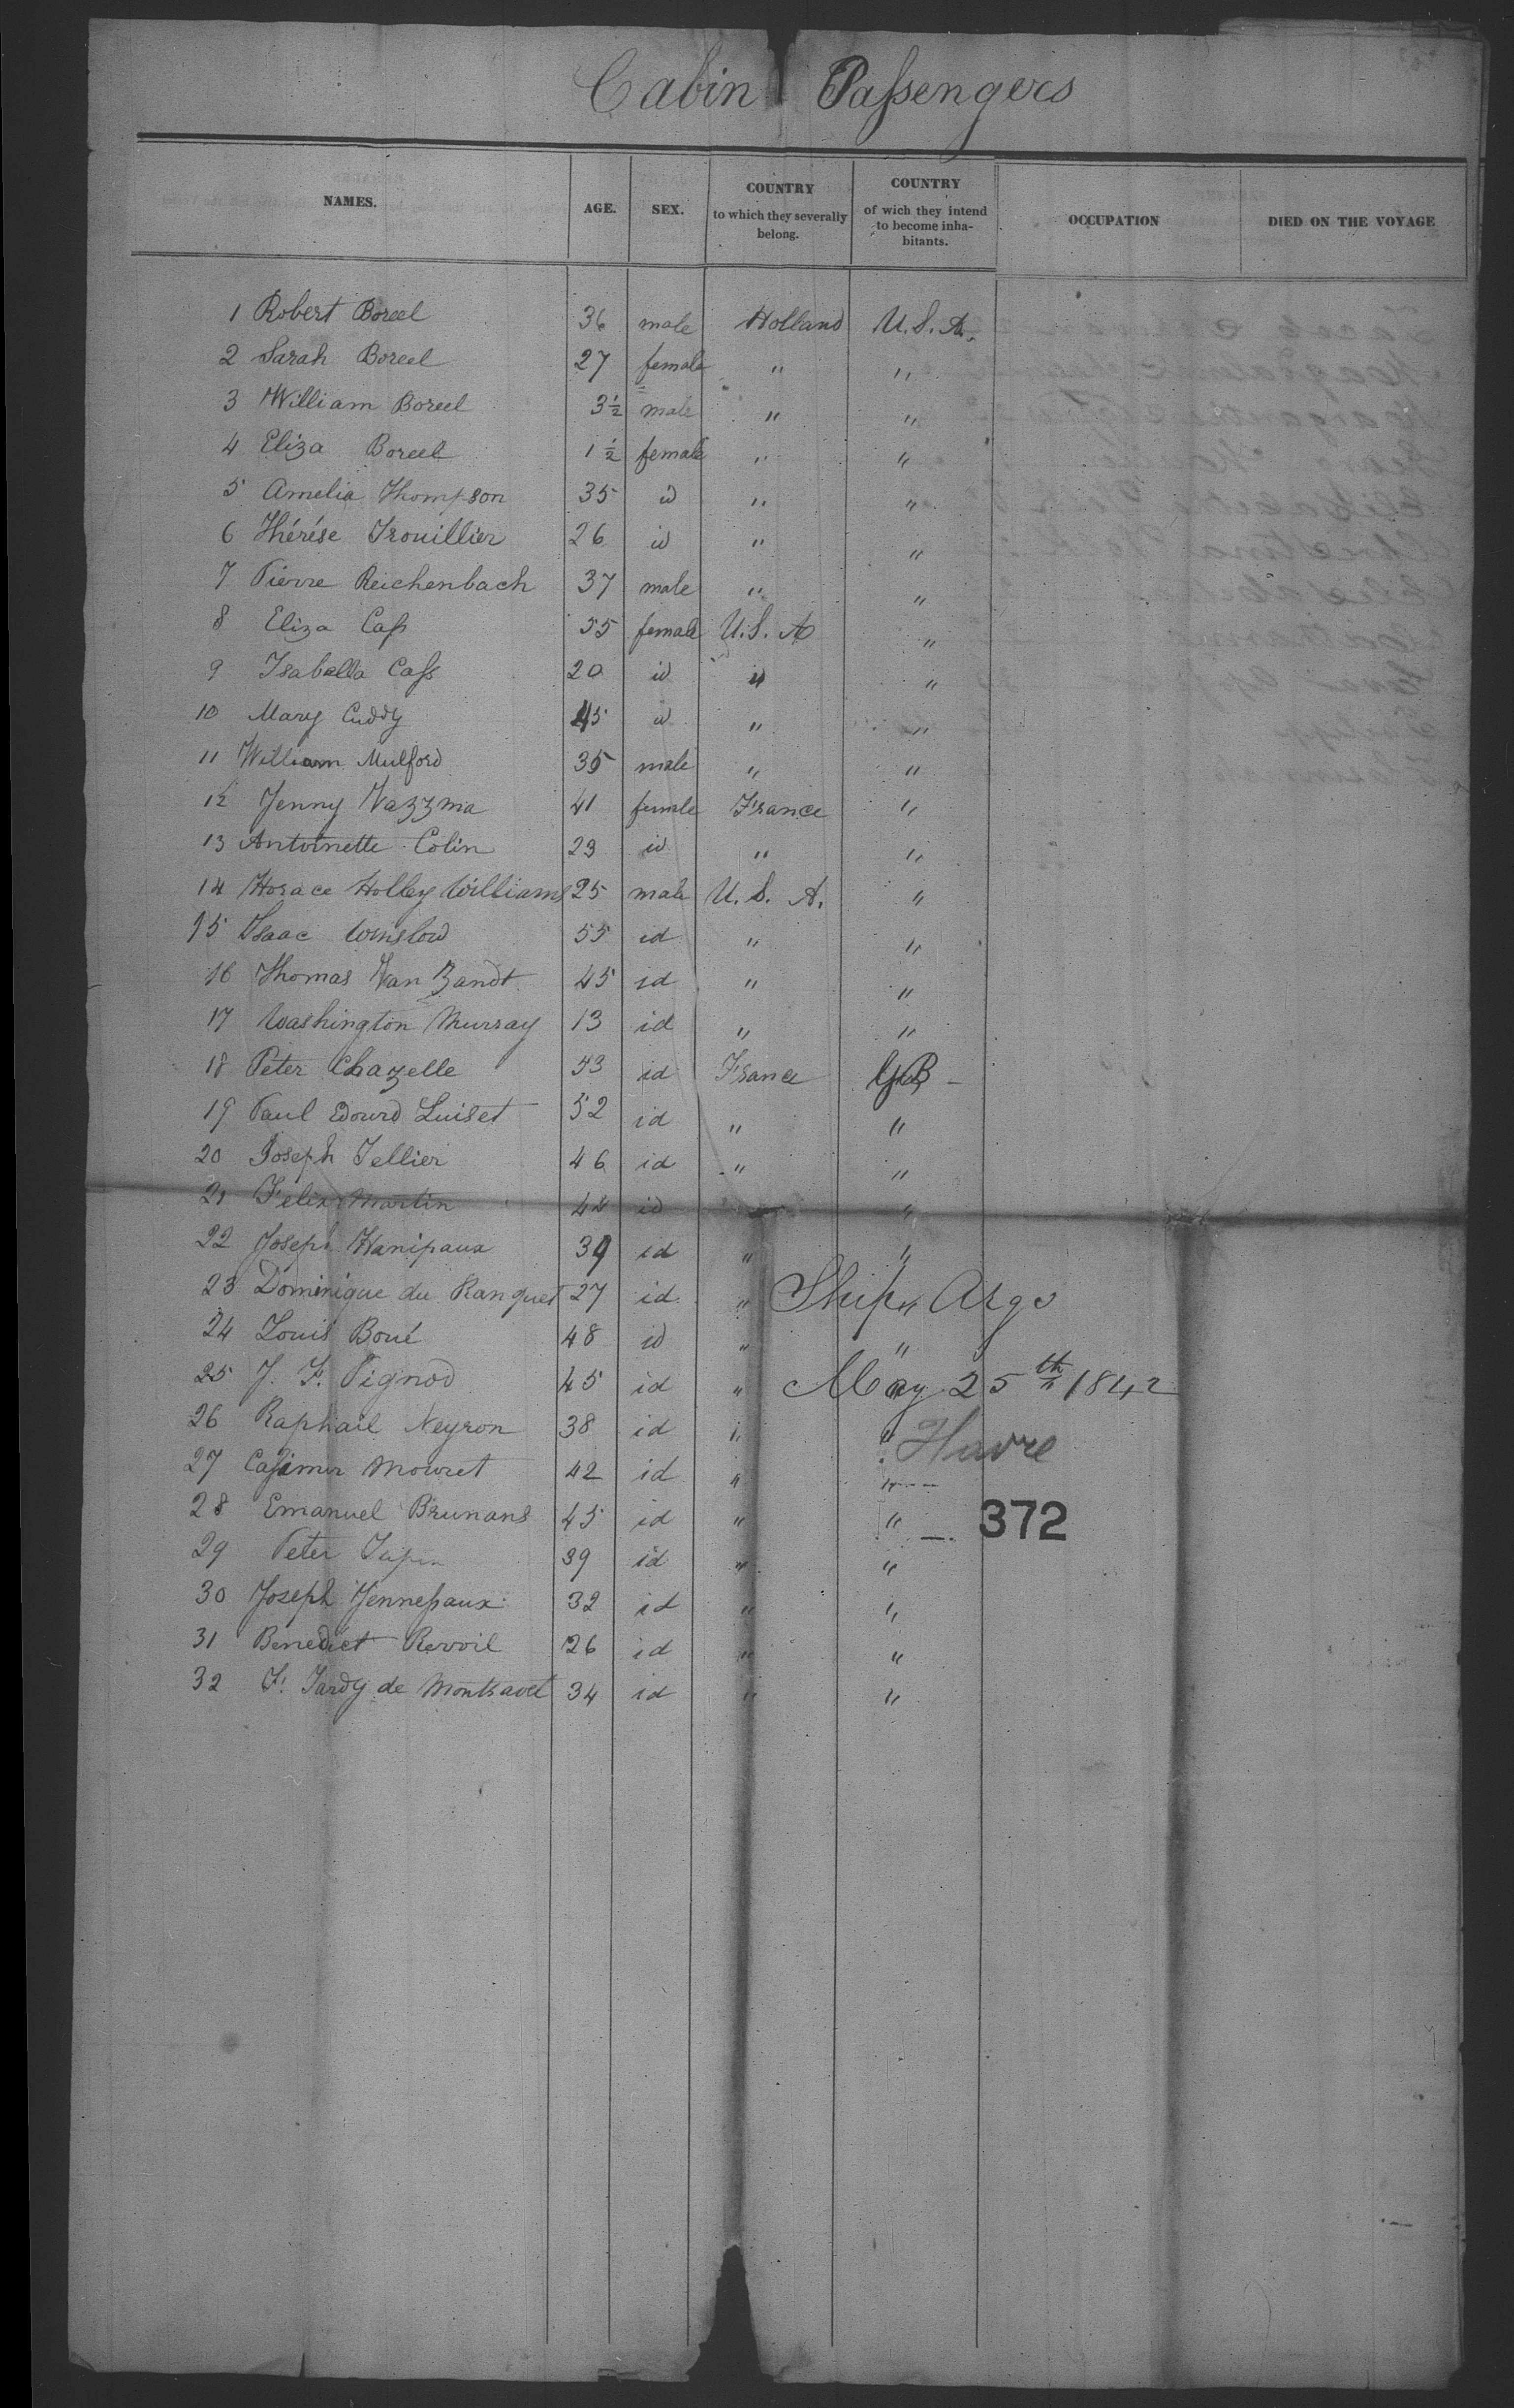 Cabin Passengers
NAMES. AGE. SEX. COUNTRY to which they severally belong. COUNTRY of wich they intend to become inha- bitants. OCCUPATION DIED ON THE VOYAGE
1 Robert Boreel 36 male Holland U.S.A.
2 Sarah Boreel 27 female " "
3 William Boreel 3½ male " "
4 Eliza Boreel 1½ female " "
5 Amelia Thompson 35 id " "
6 Thérése Trouillier 26 id " "
7 Pierre Reichenbach 37 male " "
8 Eliza Cass 55 female U.S.A "
9 Isabella Cass 20 id id "
10 Mary Cuddy 45 id " "
11 William Mulford 35 male " "
12 Jenny 41 female France "
13 Antoinette Colin 23 id " "
14 Horace Holley Williams 25 male U.S.A. "
15 Isaac Winslow 55 id " "
16 Thomas Van Zandt 45 id " "
17 Washington Murray 13 id " "
18 Peter Chazelle 53 id France GB
19 Paul Edourd Luiset 52 id " "
20 Joseph Tellier 46 id " "
21 Felix Martin 42 id "
22 Joseph Hanipaux 39 id " "
23 Dominique du Ranquet 27 id " "
Ship Argo
24 Louis Boué 48 id " "
25 J. F. Pignod 45 id " "
May 25th 1842
26 Raphail Neyron 38 id " "
Havre
27 Casimir Mouret 42 id " "
28 Emanuel Brunans 45 id " "
372
29 Peter 39 id " "
30 Joseph Jennesaux 32 id " "
31 Benedict Revoil 26 id " "
32 F. Tardy de Montravel 34 id " "